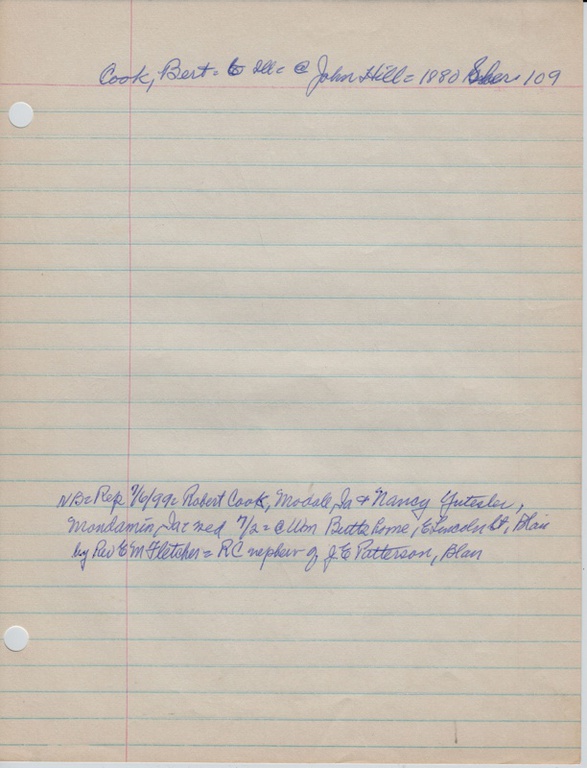 Cook, Bert = 6 Ill = @ John Hill = 1880 109
NB = Rep 7/6/99 = Robert Cook, Modale, Ia & Nancy Yutesler,
Mondamin, Ia = med 7/2 = @ Wm Butts home, E Lincoln St, Blair
by Rev E M Fletcher = RC nephew of J. E Patterson, Blair